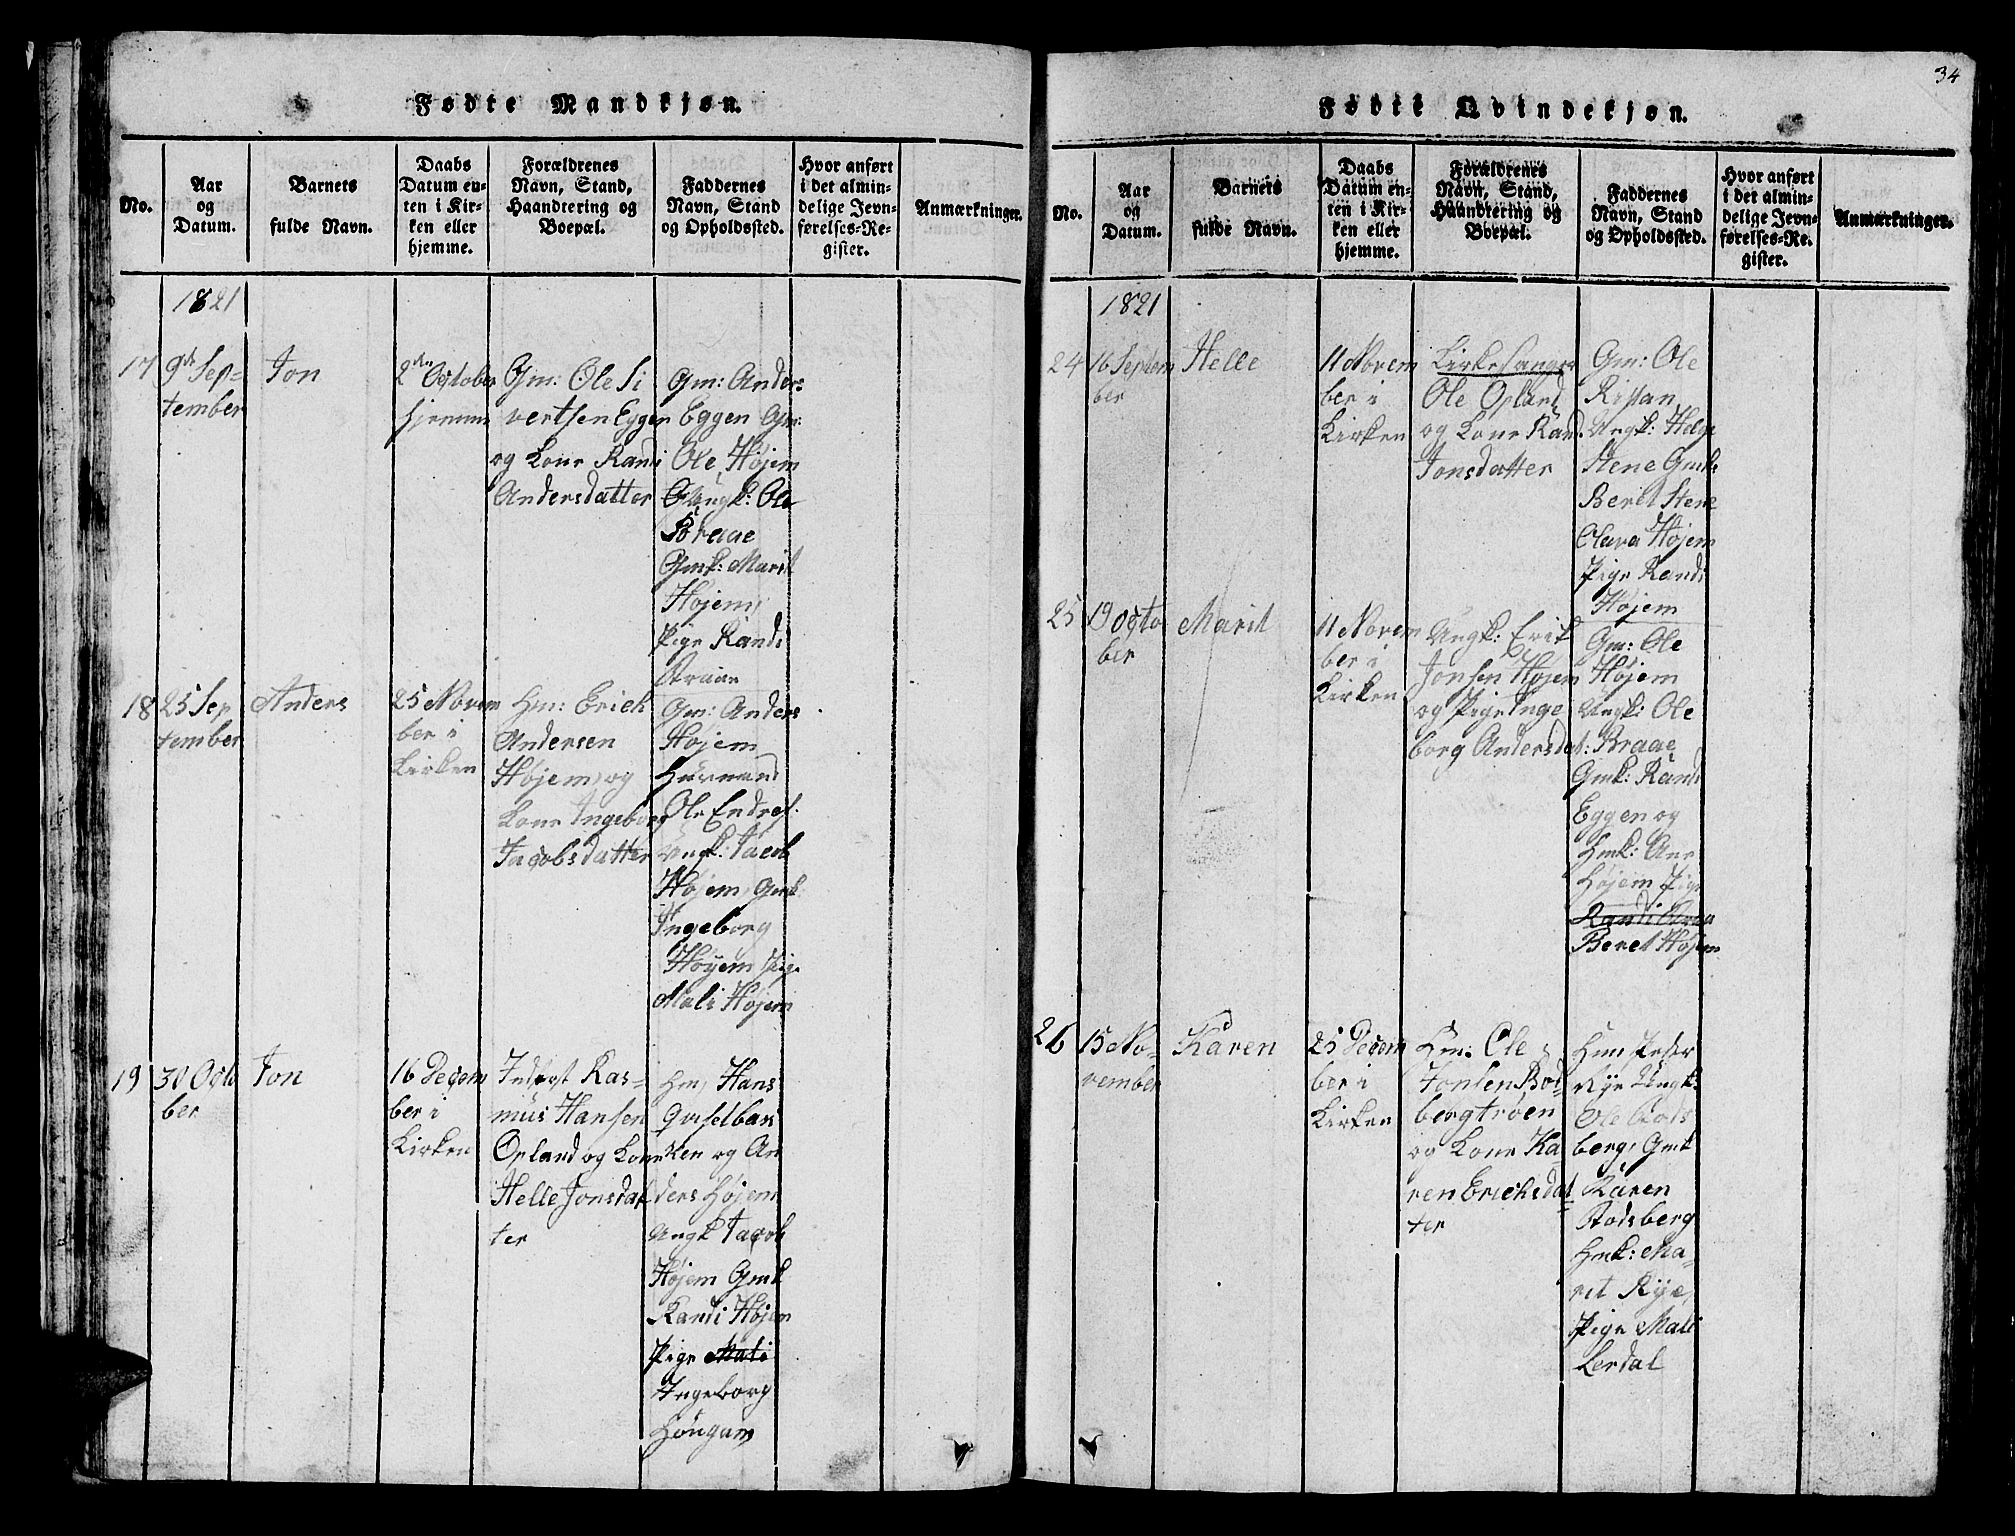 34
Fødte Mandkjøn.
No.
Aar
og
Datum.
Barnets
fulde Navn.
Daabs
Datum en-
ten i Kir-
ken eller
hjemme.
Forældrenes
Navn, Stand,
Haandtering og
Boepæl.
Faddernes
Navn, Stand
og Opholdssted.
Hvor anført
i det almin-
delige Jevn-
førelses-Re-
gister.
Anmærkninger.
1821
17
9de Sep-
tember
Jon
2den October
hjemme
Gm: Ole Si
vertsen Eggen
og Kone Randi
Andersdatter
Gm: Anders
Eggen Gm:
Ole Højem
Ungk: Ole
Braae
Gmk: Marit
Højem,
Pige Randi
Braae
18
25 Sep
tember
Anders
25 Novem
ber i
Kirken
Hm: Erich
Andersen
Højem, og
Kone Ingeborg
Jacobsdatter
Gm: Anders
Højem
Huusmand
Ole Endres.
Ungk: Jacob
Højem, Gmk
Ingeborg
Høyem Pige
Mali Højem
19
30 Octo
ber
Jon
16 Decem
ber i
Kirken
Inderst Ras=
mus Hansen
Opland og Kone
Helle Jonsdat
ter
Hm, Hans
Gaselban
ken og An
ders Højem
Ungk Jacob
Højem Gmk
Randi Højem
Pige Mali
Ingeborg
Høugum
Fødte Qvindekjøn.
No.
Aar
og
Datum.
Barnets
fulde Navn.
Daabs
Datum en-
ten i Kir-
ken eller
hjemme.
Forældrenes
Navn, Stand,
Haandtering og
Boepæl.
Faddernes
Navn, Stand
og Opholdssted.
Hvor anført
i det almin-
delige Jevn-
førelses-Re-
gister.
Anmærkninger.
1821
24
16 Septem
ber
Helle
11 Novem
ber i
Kirken
Kirkesanger
Ole Opland
og Kone Rand.
Jonsdatter
Gm: Ole
Rissan
Ungk: Helge
Stene Gmk:
Berit Stene
Olava Højem
Pige Randi
Højem
25
19 Octo
ber
Marit
11 Novem
ber i
Kirken
Ungk: Erik
Jonsen Højem
og Pige Inge
borg Andersdat:
Gm: Ole
Højem
Ungk: Ole
Braae
Gmk: Randi
Eggen og
Hmk: Ane
Højem Pige
Beret Højem
26
15 No-
vember
Karen
25 Decem
ber i
Kirken
Hm: Ole
Jonsen Rod-
bergtrøen
og Kone Ka
ren Erichsdat
ter
Hm Peder
Rye Ungk:
Ole Rods
berg, Gmk
Karen
Rodsberg
Hmk: Ma-
rit Rye,
Pige Mali
Lerdal